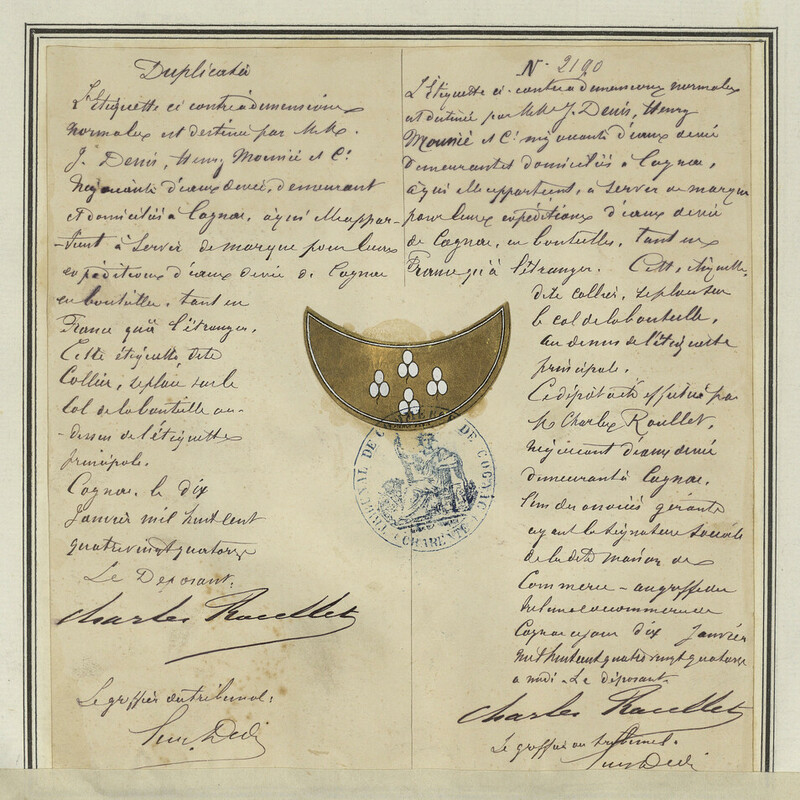 Duplicata
L'Etiquette ci contre à dimensions
normales est destinée par M.M.
J. Denis, Henry Mounié et Cie
Négociants d'eaux de vie, demeurant
et domiciliés à Cognac, à qui elle appar-
-tient à servir de marque pour leurs
expéditions d'eaux de vie de Cognac
en bouteilles, tant en
France qu'à l'étranger.
Cette étiquette dite
Collier, se place sur le
Col de la bouteille au-
-dessus de l'étiquette
principale.
Cognac, le dix
Janvier mil huit cent
quatre vingt quatorze
Le Déposant:
Charles Roullet
Le greffier du tribunal:
N° 2190
L'Etiquette ci-contre à dimensions normales
est destinée par M.M. J. Denis, Henry
Mounié et Cie négociants d'eaux de vie
demeurant et domiciliés à Cognac,
à qui elle appartient, à servir de marque
pour leurs expéditions d'eaux de vie
de Cognac, en bouteilles, tant en
France qu'à l'étranger. Cette étiquette
dite collier, se place sur
le col de la bouteille,
au dessus de l'étiquette
principale.
Ce dépôt a été effectué par
M. Charles Roullet,
négociant d'eaux de vie
demeurant à Cognac,
l'un des associés gérants
ayant la signature sociale
de la dite maison de
Commerce - au greffe du
tribunal de commerce de
Cognac ce jour dix Janvier
mil huit cent quatre vingt quatorze
à midi - Le déposant.
Charles Roullet
Le greffier du tribunal.
TRIBUNAL DE COMMERCE DE COGNAC
(CHARENTE)